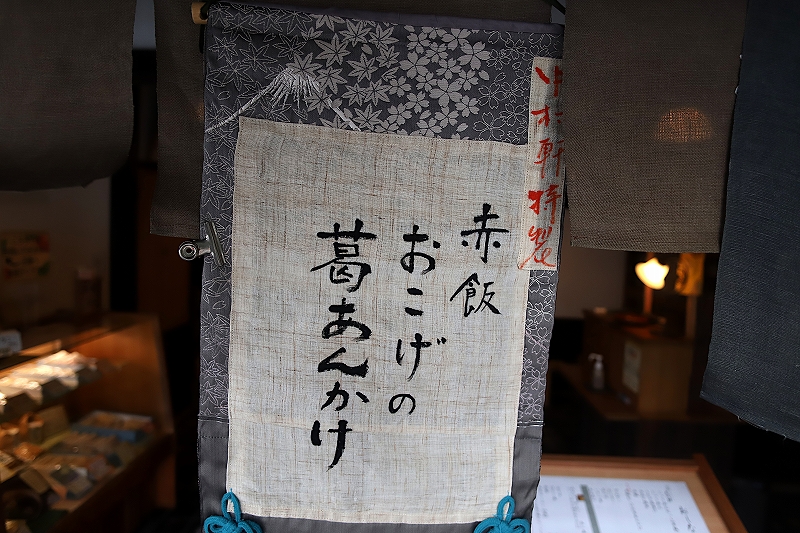 中村軒特製
赤飯
おこげの
葛あんかけ